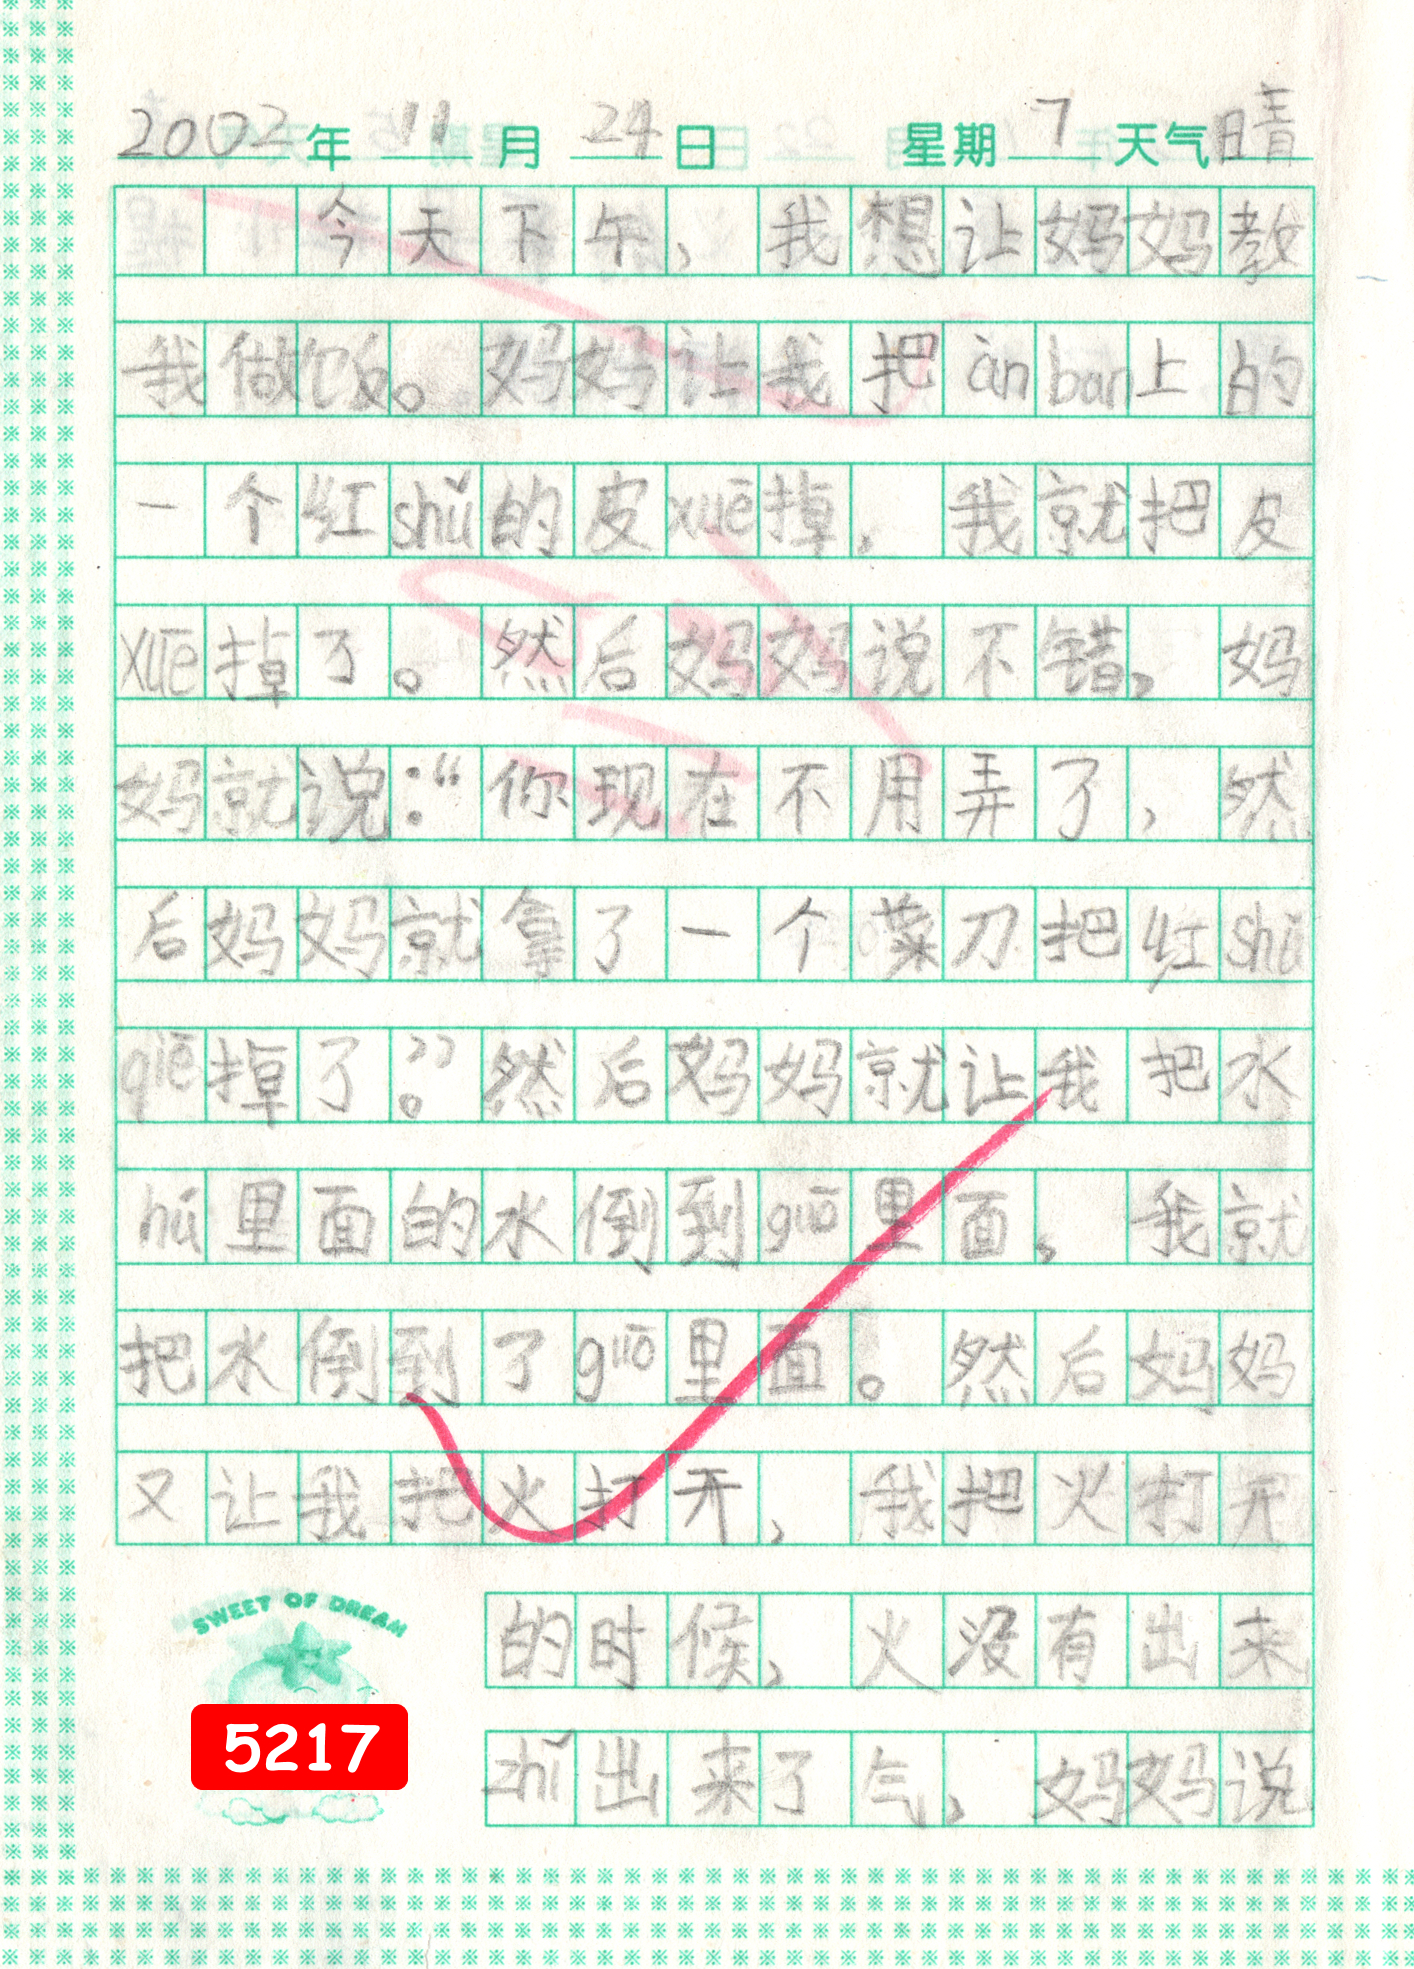 2002年 11月 24日 星期7 天气晴
今天下午，我想让妈妈教
我做饭。妈妈让我把àn bǎn上的
一个红shǔ的皮xuē掉，我就把皮
xuē掉了。然后妈妈说不错，妈
妈就说：“你现在不用弄了，然
后妈妈就拿了一个菜刀把红shǔ
qiē掉了。”然后妈妈就让我把水
hú里面的水倒到guō里面，我就
把水倒到了guō里面。然后妈妈
又让我把火打开，我把火打开
的时候，火没有出来
zhǐ出来了气，妈妈说
SWEET OF DREAM
5217